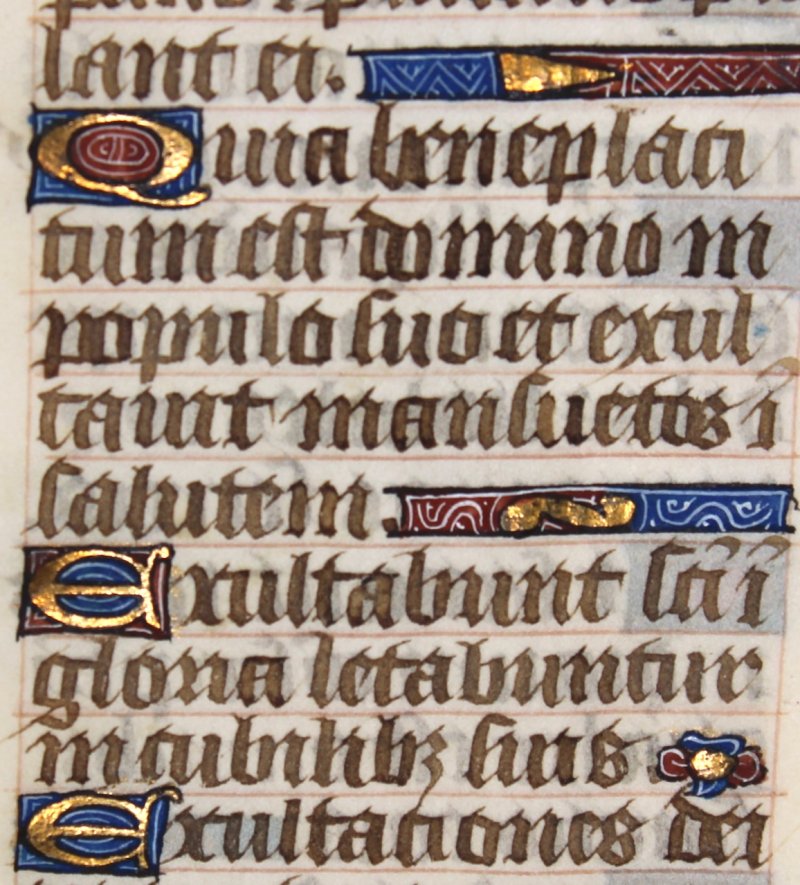 lant ei.
Quia beneplaci
tum est domino in
populo suo et exul
tauit mansuetos ĩ
salutem.
Exultabunt scĩ ĩ
gloria letabuntur
in cubilibꝫ suis
Exultationes dei